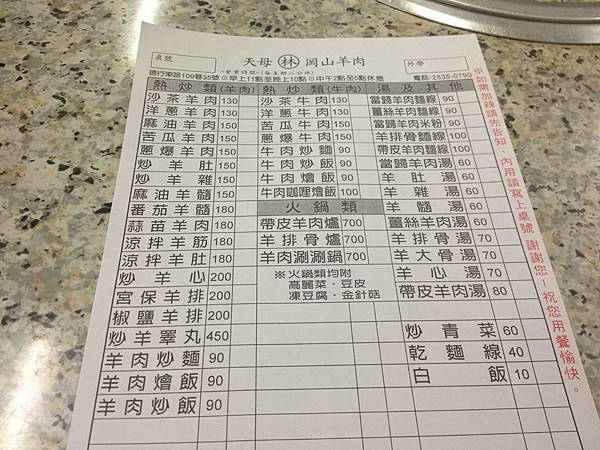 桌號
天母 林 岡山羊肉
外帶
<營業時間>(每星期二公休)
德行東路109巷35號⊙早上11點至晚上10點⊙中午2點至5點休息 電話:2835-0790
熱炒類(羊肉)
沙茶羊肉 130
洋蔥羊肉 130
麻油羊肉 150
苦瓜羊肉 150
蔥爆羊肉 150
炒羊肚 150
炒羊雜 150
麻油羊髓 150
番茄羊髓 180
蒜苗羊肉 180
涼拌羊筋 180
涼拌羊肚 180
炒羊心 200
宮保羊排 200
椒鹽羊排 200
炒羊睪丸 450
羊肉炒麵 90
羊肉燴飯 90
羊肉炒飯 90
熱炒類(牛肉)
沙茶牛肉 130
洋蔥牛肉 130
苦瓜牛肉 150
蔥爆牛肉 150
牛肉炒麵 90
牛肉炒飯 90
牛肉燴飯 90
牛肉咖哩燴飯 100
火鍋類
帶皮羊肉爐 700
羊排骨爐 700
羊肉涮涮鍋 700
※火鍋類均附
高麗菜·豆皮
凍豆腐·金針菇
湯及其他
當歸羊肉麵線 90
薑絲羊肉麵線 90
當歸羊肉米粉 90
羊排骨麵線 100
帶皮羊肉麵線 100
當歸羊肉湯 60
羊肚湯 60
羊雜湯 60
羊髓湯 60
薑絲羊肉湯 60
羊排骨湯 70
羊大骨湯 70
羊心湯 70
帶皮羊肉湯 80
炒青菜 60
乾麵線 40
白飯 10
※如需加辣請先告知,內用請寫上桌號 謝謝您!祝您用餐愉快。